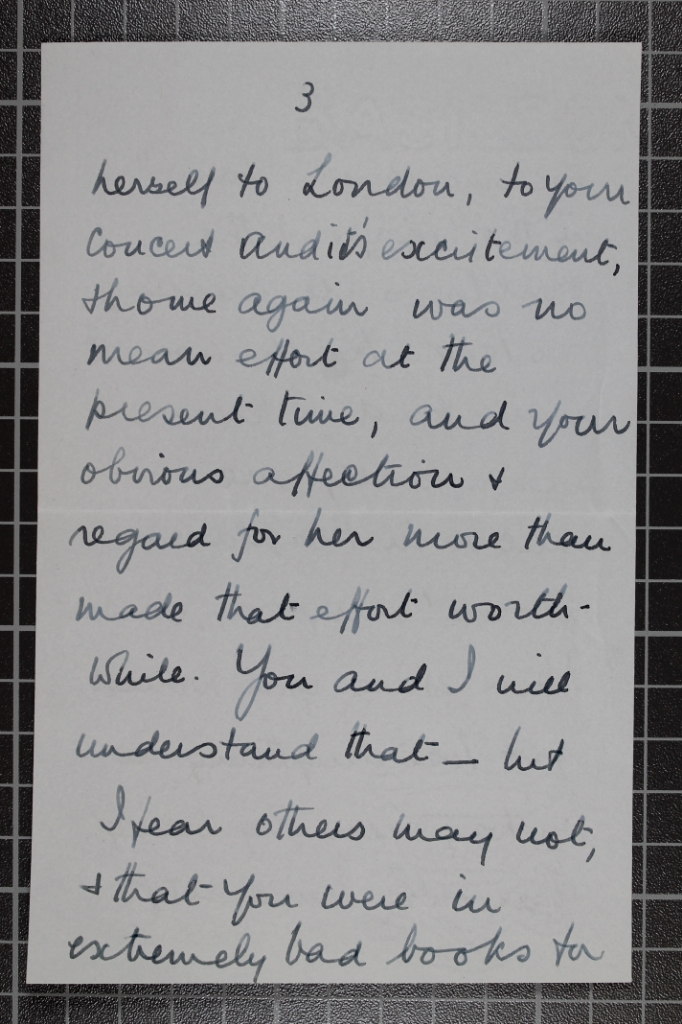 3
herself to London, to your
Concert and it's excitement,
& home again was no
mean effort at the
present time, and your
obvious affection &
regard for her more than
made that effort worth-
while. You and I will
understand that — but
I fear others may not,
& that you were in
extremely bad books for